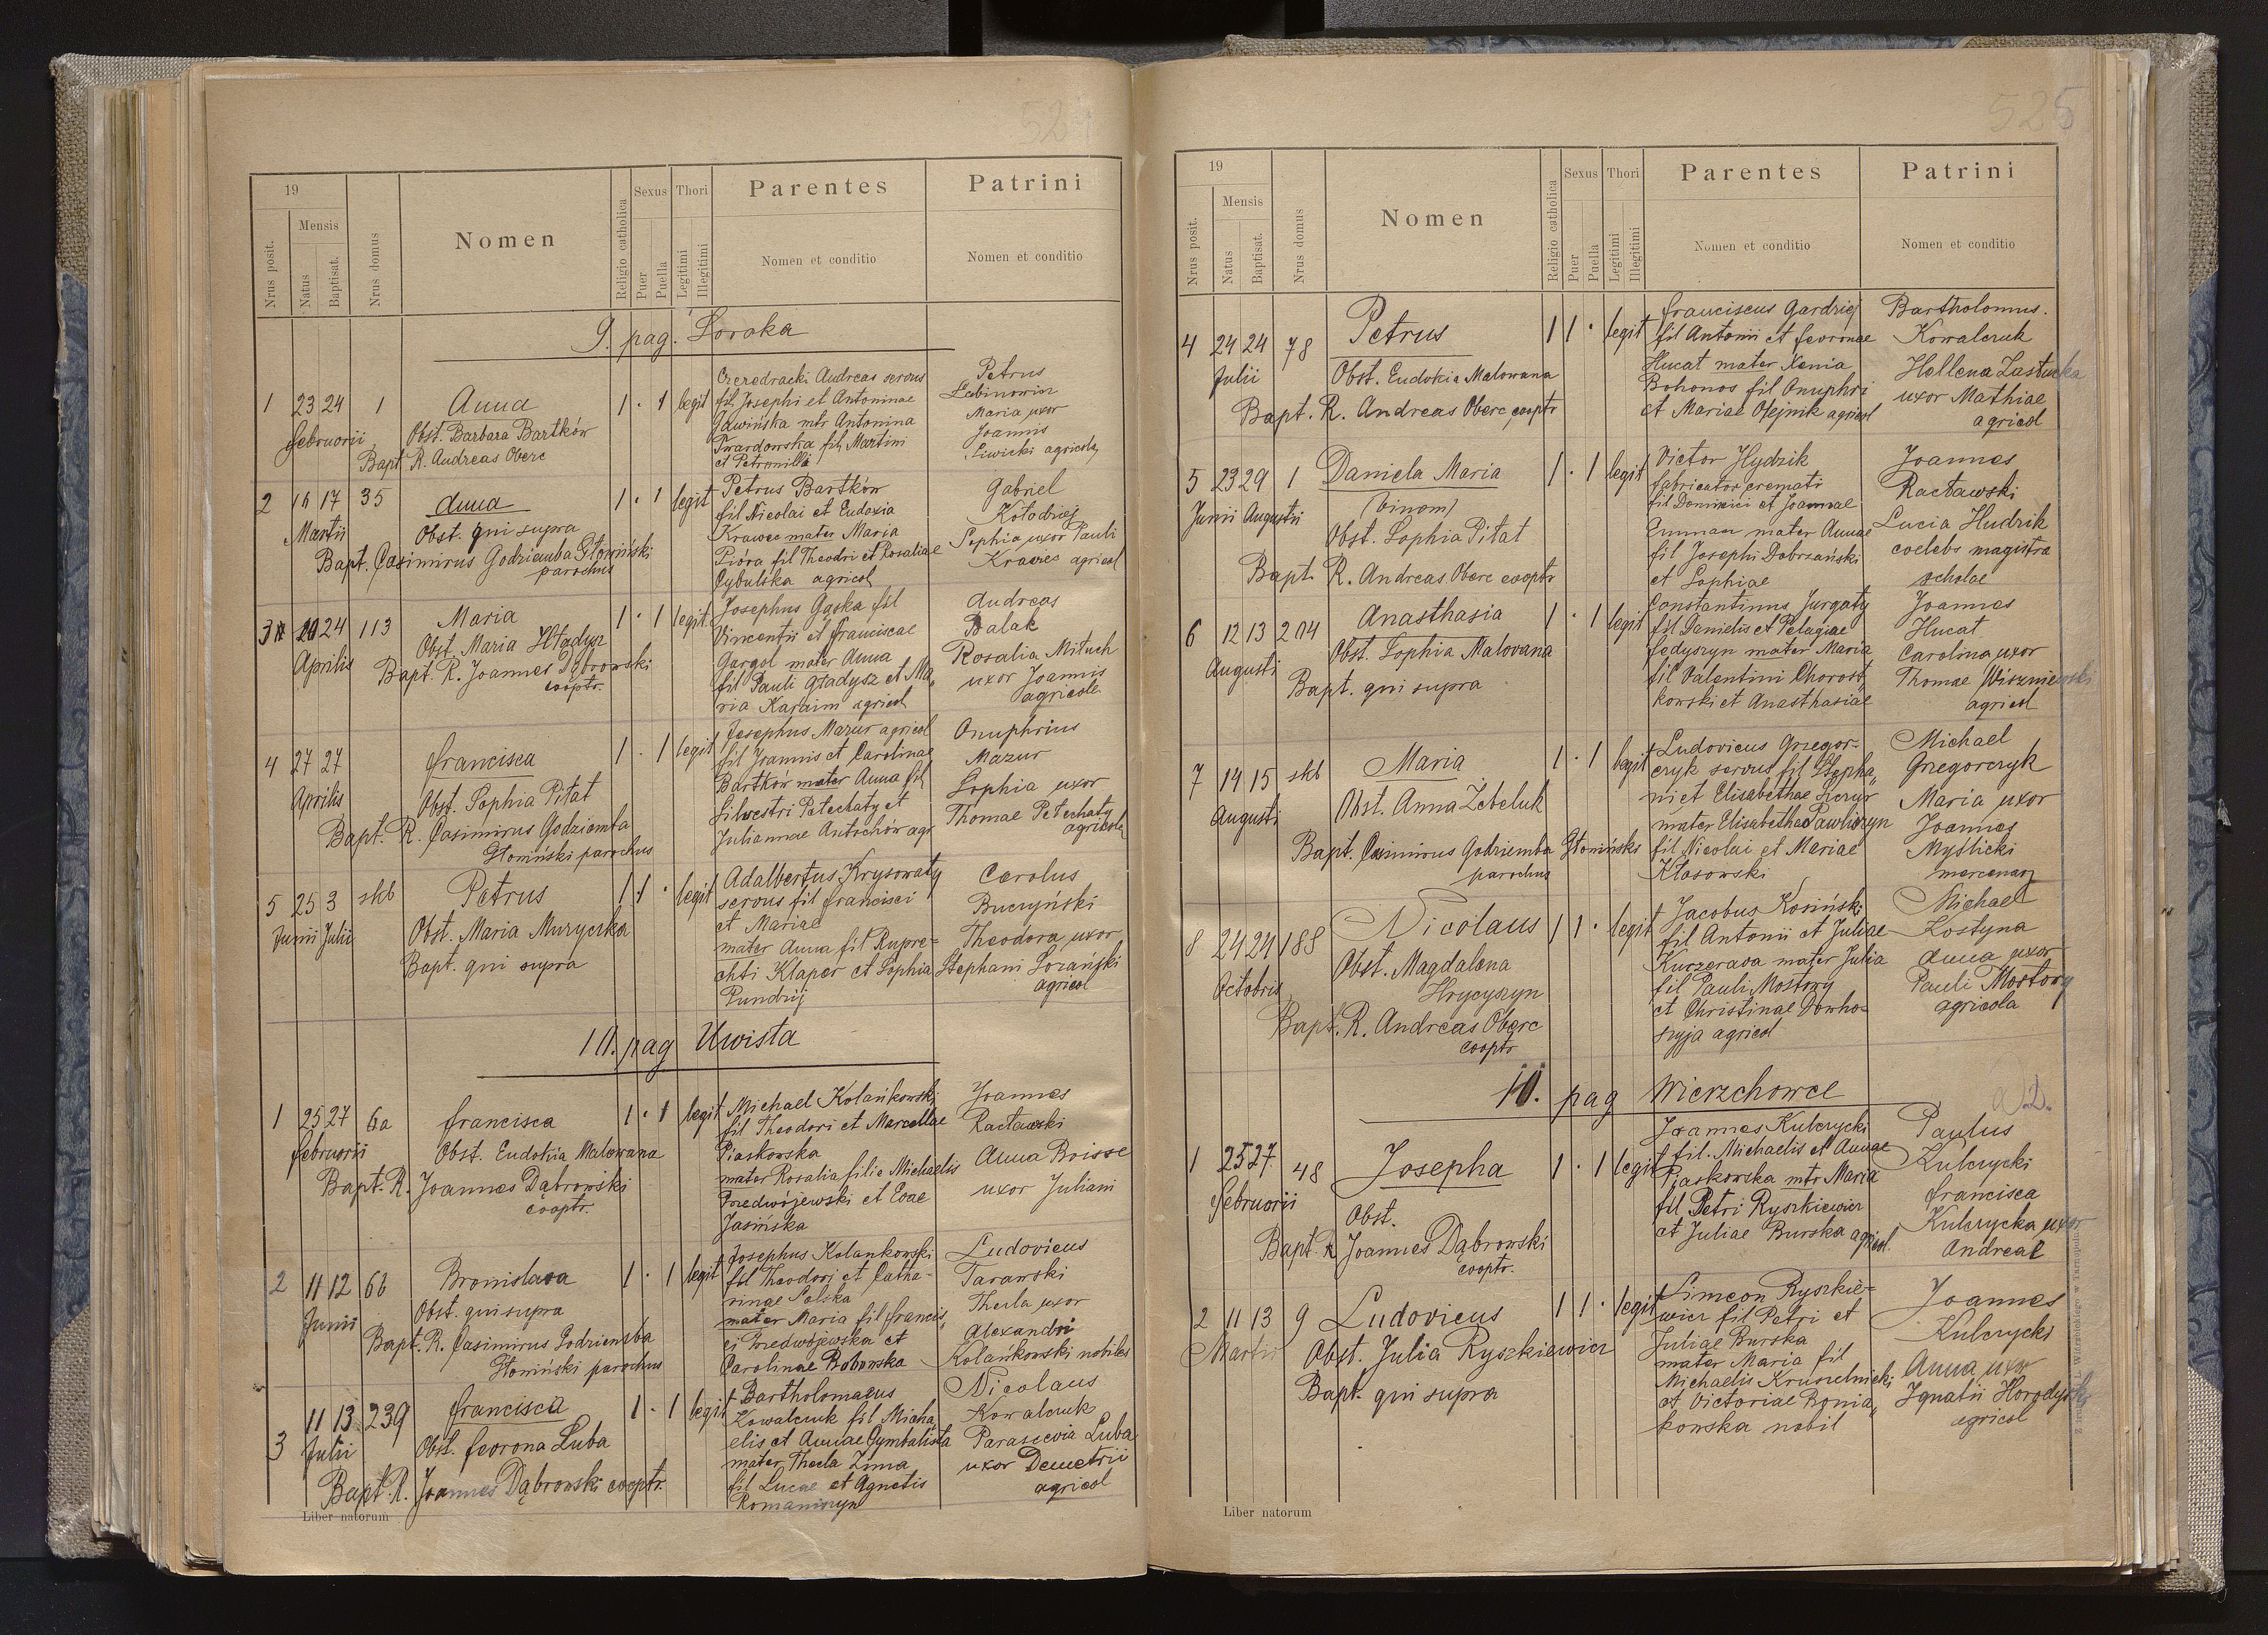 524
19
Nrus posit.
Mensis
Natus
Baptisat.
Nrus domus
Nomen
Religio catholica
Sexus
Puer
Puella
Thori
Legitimi
Illegitimi
Parentes
Nomen et conditio
Patrini
Nomen et conditio
9. pag. Soroka
1 23 24 1 Anna 1 · 1 legit
Februarii
Obst. Barbara Bartków
Bapt. R. Andreas Oberc
Czeredracki Andreas servus
fil. Josephi et Antoninae
Gawińska mtr Antonina
Twardowska fil. Martini
et Petronilla
Petrus
Labinowicz
Maria uxor
Joannis
Liwicki agricola
2 16 17 35 Anna 1 · 1 legit
Martii
Obst. qui supra
Bapt. Casimirus Godziemba Głomiński
parochus
Petrus Bartków
fil Nicolai et Eudoxia
Krawec mater Maria
Pióra fil Theodri et Rosaliae
Cybulska agricol
Gabriel
Kołodziej
Sophia uxor Pauli
Krawec agricol
3 20 24 113 Maria 1 · 1 legit.
Aprilis
Obst. Maria Hładysz
Bapt. R. Joannes Dąbrowski
cooptr.
Josephus Gąska fil
Vincentii et Franciscae
Gargol mater Anna
fil Pauli Gładysz et Ma„
ria Karaim agricol
Andreas
Balak
Rosalia Mituch
uxor Joannis
agricole
4 27 27 Francisca 1 · 1 legit
Aprilis
Obst. Sophia Pitat
Bapt. R. Casimirus Godziemba
Głomiński parochus
Josephus Mazur agricol
fil Joannis at Carolinae
Bartków mater Anna fil
Silvestri Petechaty et
Juliannae Antochów agr.
Onuphrius
Mazur
Sophia uxor
Thomae Petechaty
agricola
5 25 3 skb Petrus 1 1 · legit
Junii Julii
Obst. Maria Muryczka
Bapt. qui supra
Adalbertus Krysowaty
servus fil Francisci
et Mariae
mater Anna fil Rupre=
chti Klaper et Sophia
Pundrij
Carolus
Buczyński
Theodora uxor
Stephani Lozański
agricol
10. pag Uwista
1 25 27 6a Francisca 1 · 1 legit
Februarii
Obst. Eudokia Malowana
Bapt. R. Joannes Dąbrowski
cooptr.
Michael Kolańkowski
fil Theodori et Marcellae
Piaskowska
mater Rosalia filia Michaelis
Przedwójewski et Evae
Jasińska
Joannes
Racławski
Anna Boisse
uxor Juliani
2 11 12 6b Bronislava 1 · 1 legit
Junii
Obst. qui supra
Bapt. R. Casimirus Godziemba
Głomiński parochus
Josephus Kolankowski
fil Theodori et Catha-
rinae Solska
mater Maria fil Francis„
ci Przedwojewska et
Carolinae Bobowska
Ludovicus
Tarawski
Thecla uxor
Alexandri
Kolańkowski nobiles
3 11 13 239 Francisca 1 · 1 legit
Julii
Obst. Fevrona Luba
Bapt. R. Joannes Dąbrowski cooptr.
Bartholomaeus
Kowalczuk fil Micha„
elis et Annae Cymbalista
mater Thecla Zima
fil Lucae et Agnetis
Romaniszyn
Nicolaus
Kowalczuk
Parascevia Luba
uxor Demetrii
agricol
Liber natorum
525
19
Nrus posit.
Mensis
Natus
Baptisat.
Nrus domus
Nomen
Religio catholica
Sexus
Puer
Puella
Thori
Legitimi
Illegitimi
Parentes
Nomen et conditio
Patrini
Nomen et conditio
4 24 24 78 Petrus 1 1 · legit
Julii
Obst. Eudokia Malowana
Bapt. R. Andreas Oberc cooptr
Franciscus Gardziej
fil Antonii et Fevronae
Hucat mater Xenia
Bohonos fil Onuphri
et Mariae Olejnik agricol
Bartholomus.
Kowalczuk
Hellena Zastucka
uxor Mathiae
agricol
5 23 29 1 Daniela Maria 1 · 1 legit
Junii Augustii
(binom)
Obst. Sophia Pitat
Bapt. R. Andreas Oberc cooptr
Victor Hydzik
fabricator cremati
fil Dominici et Joannae
Emman mater Annae
fil Josephi Dobrzański
et Sophiae
Joannes
Racławski
Lucia Hudzik
coelebs magistra
scholae
6 12 13 204 Anasthasia 1 · 1 legit
Augusti
Obst. Sophia Malovana
Bapt. qui supra
Constantinus Jurgaty
fil Danielis et Pelagiae
Fedyszyn mater Maria
fil Valentini Chorost„
kowski et Anasthasiae
Joannes
Hucat
Carolina uxor
Thomae Wiszniewski
agricol
7 14 15 skb Maria 1 · 1 legit
Augusti
Obst. Anna Zebeluk
Bapt. Casimirus Godziemba Głomiński
parochus
Ludovicus Grzegor-
czyk servus fil Stepha„
ni et Elisabethae Szczur
mater Elisabetha Pawliszyn
fil Nicolai et Mariae
Kłosowski
Michael
Grzegorczyk
Maria uxor
Joannes
Myślicki
mercenarz
8 24 24 188 Nicolaus 1 1 · legit
Octobris
Obst. Magdalena
Hrycyszyn
Bapt. R. Andreas Oberc
cooptr
Jacobus Kosiński
fil Antonii et Juliae
Kuczerava mater Julia
fil Pauli Mostowy
et Christinae Dowho=
szyja agricol
Michael
Kostyna
Anna uxor
Pauli Mostowy
agricola
10. pag Wierzchowce
1 25 27 48 Josepha 1 · 1 legit
Februarii
Obst.
Bapt. R Joannes Dąbrowski
cooptr.
Joannes Kulczycki
fil. Michaelis et Annae
Piaskowska mtr Maria
fil Petri Ryszkiewicz
et Juliae Burska agricol.
Paulus
Kulczycki
Francisca
Kulczycka uxor
Andreae
2 11 13 9 Ludovicus 1 1 · legit
Martii
Obst. Julia Ryszkiewicz
Bapt. qui supra
Simeon Ryszkie=
wicz fil Petri et
Juliae Burska
mater Maria fil
Michaelis Kruszelnicki
et Victoriae Bonia„
kowska nobil
Joannes
Kulczycki
Anna uxor
Ignatii Horodyski
agricol
Liber natorum